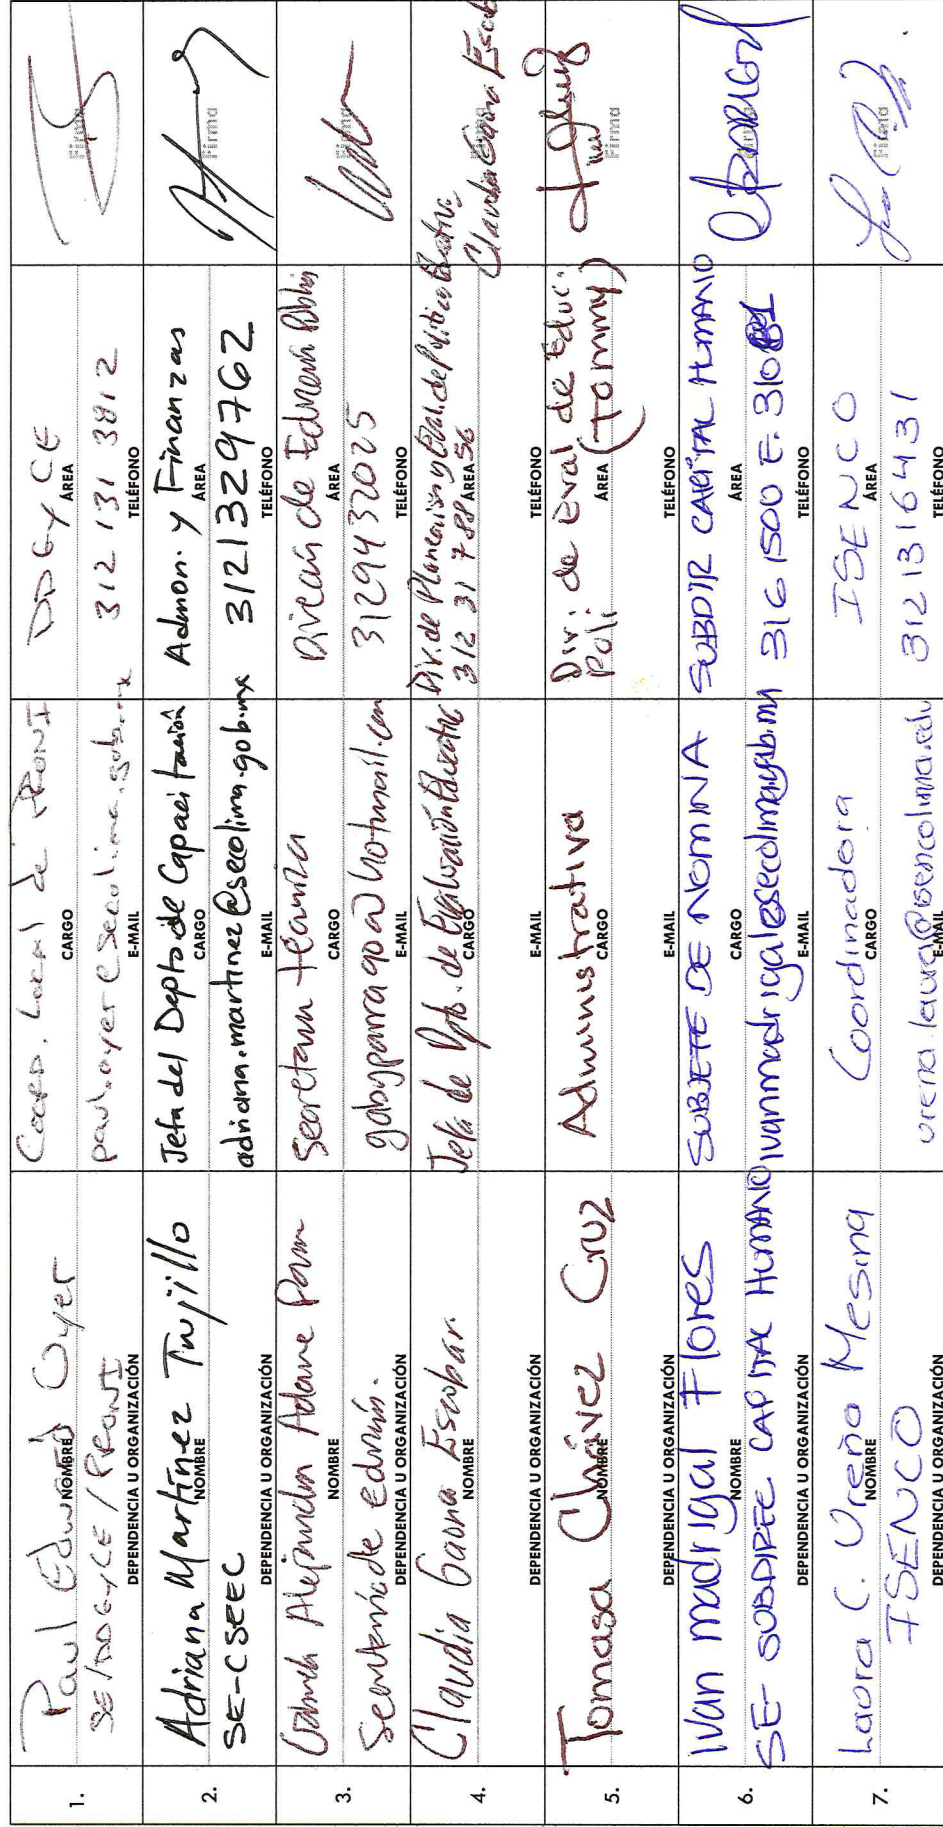 1.
Paul Edward Oyer
NOMBRE
SE/DDGyCE/PRONI
DEPENDENCIA U ORGANIZACIÓN
Coord. Local de PRONI
CARGO
paul.oyer@secolima.gob.mx
E-MAIL
DDGyCE
ÁREA
312 131 3812
TELÉFONO
Firma
2.
Adriana Martínez Trujillo
NOMBRE
SE-CSEEC
DEPENDENCIA U ORGANIZACIÓN
Jefa del Depto de Capacitación
CARGO
adriana.martinez@secolima.gob.mx
E-MAIL
Admon. y Finanzas
ÁREA
3121329762
TELÉFONO
Firma
3.
Alejandra
NOMBRE
de educ.
DEPENDENCIA U ORGANIZACIÓN
Secretaria técnica
CARGO
gabyparra90@hotmail.com
E-MAIL
Dirección de Educación Pública
ÁREA
3129432025
TELÉFONO
Firma
4.
Claudia Gaona Escobar.
NOMBRE
DEPENDENCIA U ORGANIZACIÓN
Jefa de Dpto. de Evaluación Educativa
CARGO
E-MAIL
Dir. de Planeación y Eval. de Política Educativa
312 31 7 88 56
ÁREA
TELÉFONO
Claudia Gaona Escob
5.
Tomasa Chávez Cruz
NOMBRE
DEPENDENCIA U ORGANIZACIÓN
Administrativa
CARGO
E-MAIL
Dir. de Eval de Educ.
Poli. (Tommy)
ÁREA
TELÉFONO
Firma
6.
Ivan madrigal Flores
NOMBRE
SE- SUBDIREC CAPITAL HUMANO
DEPENDENCIA U ORGANIZACIÓN
SUBJEFE DE NOMINA
CARGO
ivanmadrigal@secolima.gob.mx
E-MAIL
SUBDIR CAPITAL HUMANO
ÁREA
316 1500 E.
TELÉFONO
Firma
7.
Laura C. Ureña Mesina
NOMBRE
ISENCO
DEPENDENCIA U ORGANIZACIÓN
Coordinadora
CARGO
urena.laura@isencolima.edu
E-MAIL
ISENCO
ÁREA
3121316431
TELÉFONO
Firma